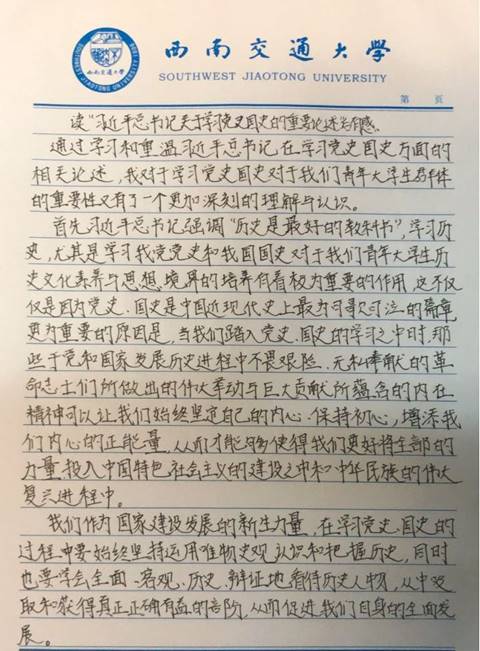 西南交通大学
SOUTHWEST JIAOTONG UNIVERSITY
第 页
读"习近平总书记关于学习党史国史的重要论述"有感
通过学习和重温习近平总书记在学习党史国史方面的
相关论述，我对于学习党史国史对于我们青年大学生群体
的重要性又有了一个更加深刻的理解与认识。
首先习近平总书记强调"历史是最好的教科书"，学习历
史，尤其是学习我党党史和我国国史对于我们青年大学生历
史文化素养与思想境界的培养有着极为重要的作用，这不仅
仅是因为党史、国史是中国近现代史上最为可歌可泣的篇章，
更为重要的原因是，当我们踏入党史、国史的学习之中时，那
些于党和国家发展历史进程中不畏艰险、无私奉献的革
命志士们所做出的伟大举动与巨大贡献所蕴含的内在
精神可以让我们始终坚定自己的内心、保持初心，增添我
们内心的正能量，从而才能够使得我们更好将全部的
力量投入中国特色社会主义的建设之中和中华民族的伟大
复兴进程中。
我们作为国家建设发展的新生力量，在学习党史、国史的
过程中要始终坚持运用唯物史观认识和把握历史，同时
也要学会全面、客观、历史、辩证地看待历史人物，从中汲
取和获得真正正确有益的部分，从而促进我们自身的全面发
展。